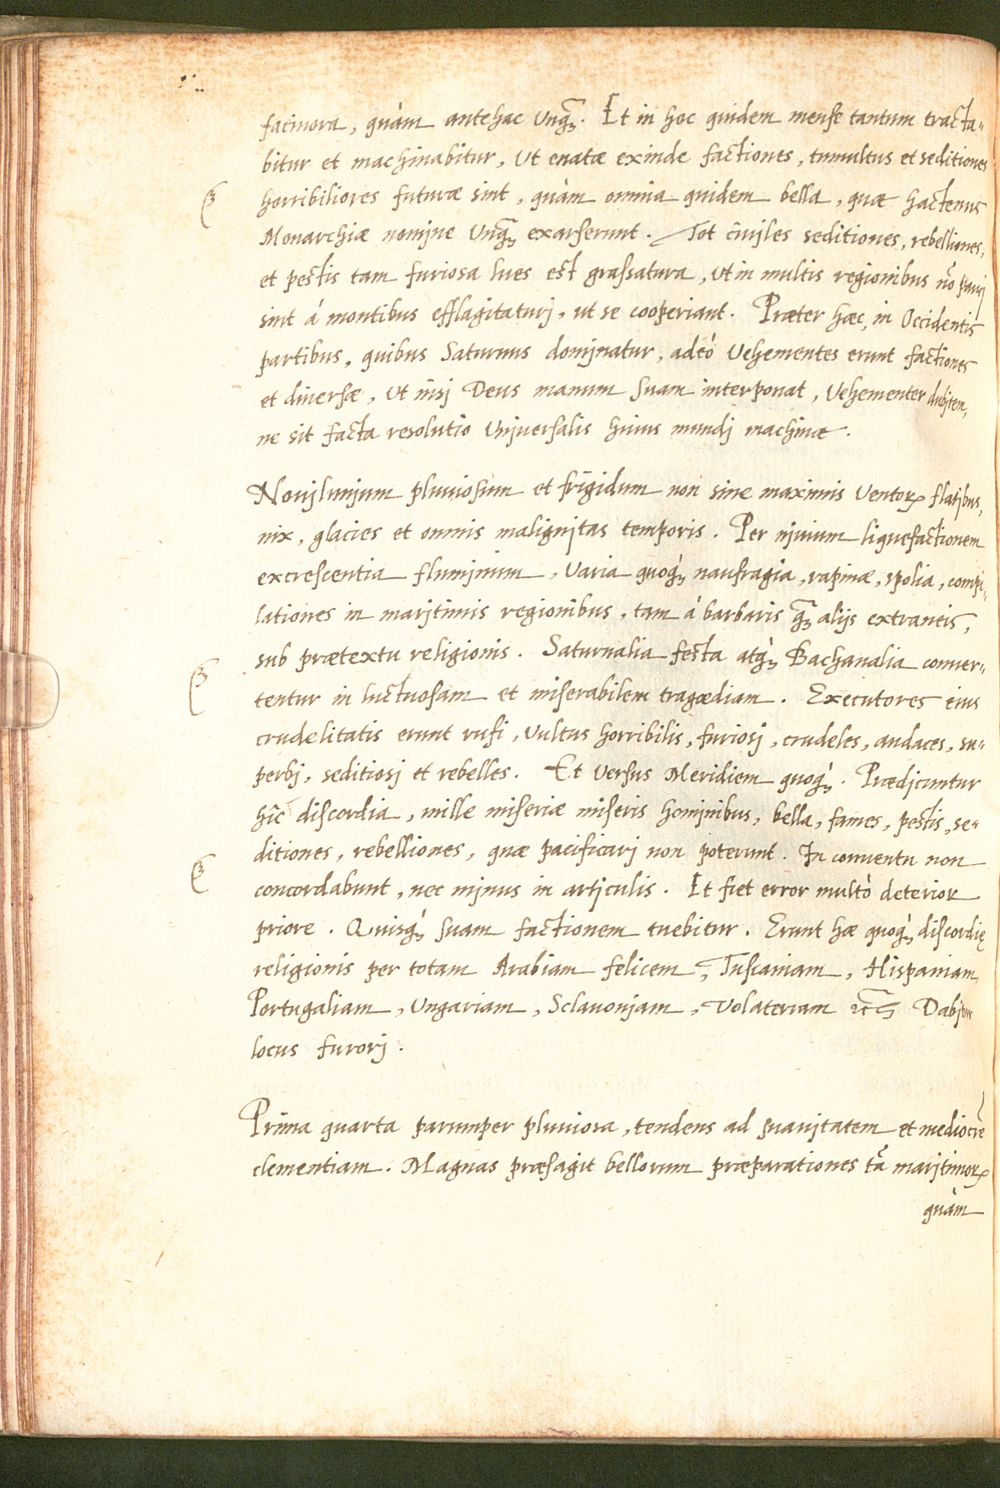 facinora, quàm antehac Unq̃ȝ. Et in hoc quidem mense tantum tracta-
bitur et machinabitur, Ut enatæ exinde factiones, tumultus et seditiones
horribiliores futuræ sint, quàm omnia quidem bella, quæ hactenus
Monarchiæ nomine Unq̃ȝ exarserunt. Tot ciuiles seditiones, rebelliones,
et pestis tam furiosa lues est grassatura, Ut in multis regionibus nõ pauci
sint á montibus efflagitaturj, ut se cooperiant. Præter hæc, in Occidentis
partibus, quibus Saturnus dominatur, adeó Vehementes erunt factiones
et diuersæ, Ut nisj Deus manum suam interponat, Vehementer dubitem,
ne sit facta resolutio Uniuersalis huius mundj machinæ.
Nouilunium pluuiosum et frigidum non sine maximis Ventoꝝ flatibus,
nix, glacies et omnis malignitas temporis. Per niuium liquefactionem
excrescentia fluminum, Varia quoq́ȝ naufragia, rapinæ, spolia, compi-
lationes in maritimis regionibus, tam á barbaris q̃ȝ alijs extraneis,
sub prætextu religionis. Saturnalia festa atq́ȝ Bachanalia conuer-
tentur in luctuosam et miserabilem tragœdiam. Executores eius
crudelitatis erunt rufi, Vultus horribilis, furiosj, crudeles, audaces, su-
perbj, seditiosj et rebelles. Et Versus Meridiem quoq́ȝ. Prædicuntur
hîc discordia, mille miseriæ miseris hominibus, bella, fames, pestis, se-
ditiones, rebelliones, quæ pacificarj non poterunt. In conuentu non
concordabunt, nec minus in articulis. Et fiet error multò deterior
priore. Quisq́ȝ suam factionem tuebitur. Erunt hæ quoq́ȝ discordię
religionis per totam Arabiam felicem, Tusciam, Hispaniam,
Portugaliam, Ungariam, Sclauoniam, Volaterram ꝛc̃ Dabitur
locus furorj.
Prima quarta parumper pluuiosa, tendens ad suauitatem et mediocrẽ
clementiam. Magnas præsagit bellorum præparationes tã maritimoꝝ
quàm